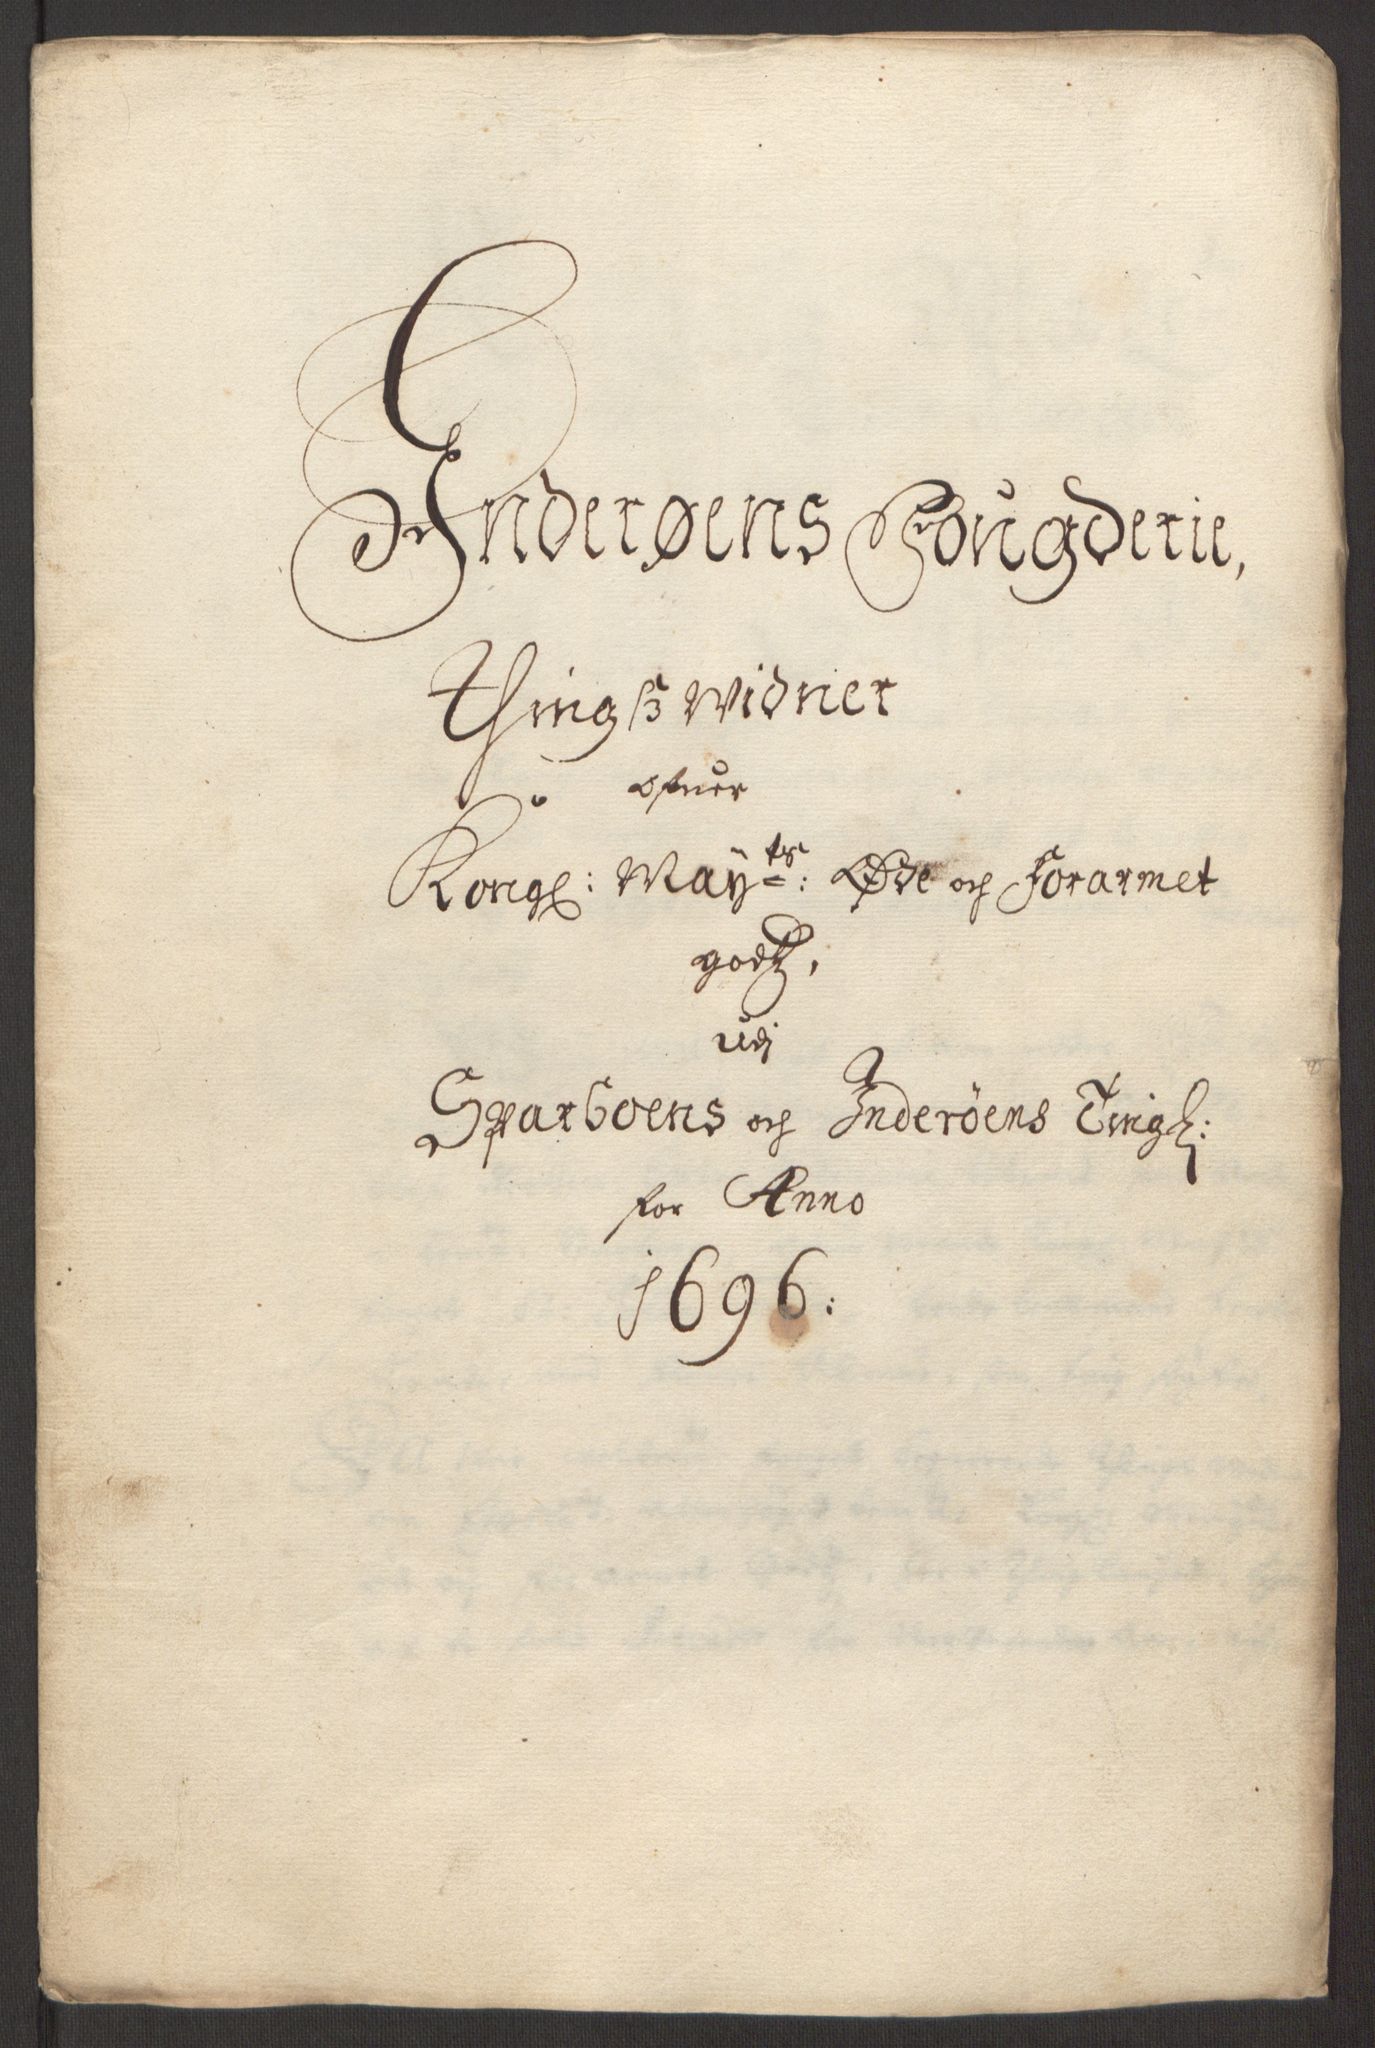 Inderøens Fougderie,
Thingsß Widner
ofuer
Kongl: Maÿts: Øde och Forarmet
godtz,
udj
Sparboens och Inderøens Tingl:
for Anno
1696: